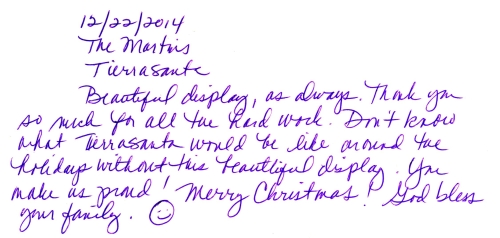 12/22/2014
The Martins
Tierrasanta
Beautiful display, as always. Thank you
so much for all the hard work. Don't know
what Tierrasanta would be like around the
holidays without this beautiful display. You
make us proud! Merry Christmas! God bless
your family. ☺